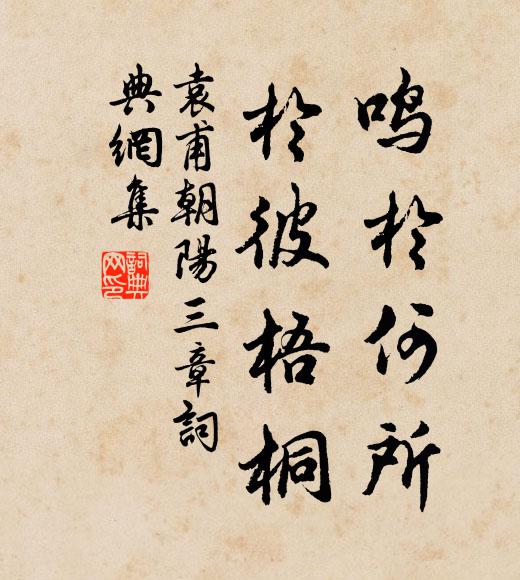 鳴於何所
於彼梧桐
袁甫朝陽三章詞
典網集
詞典
网印